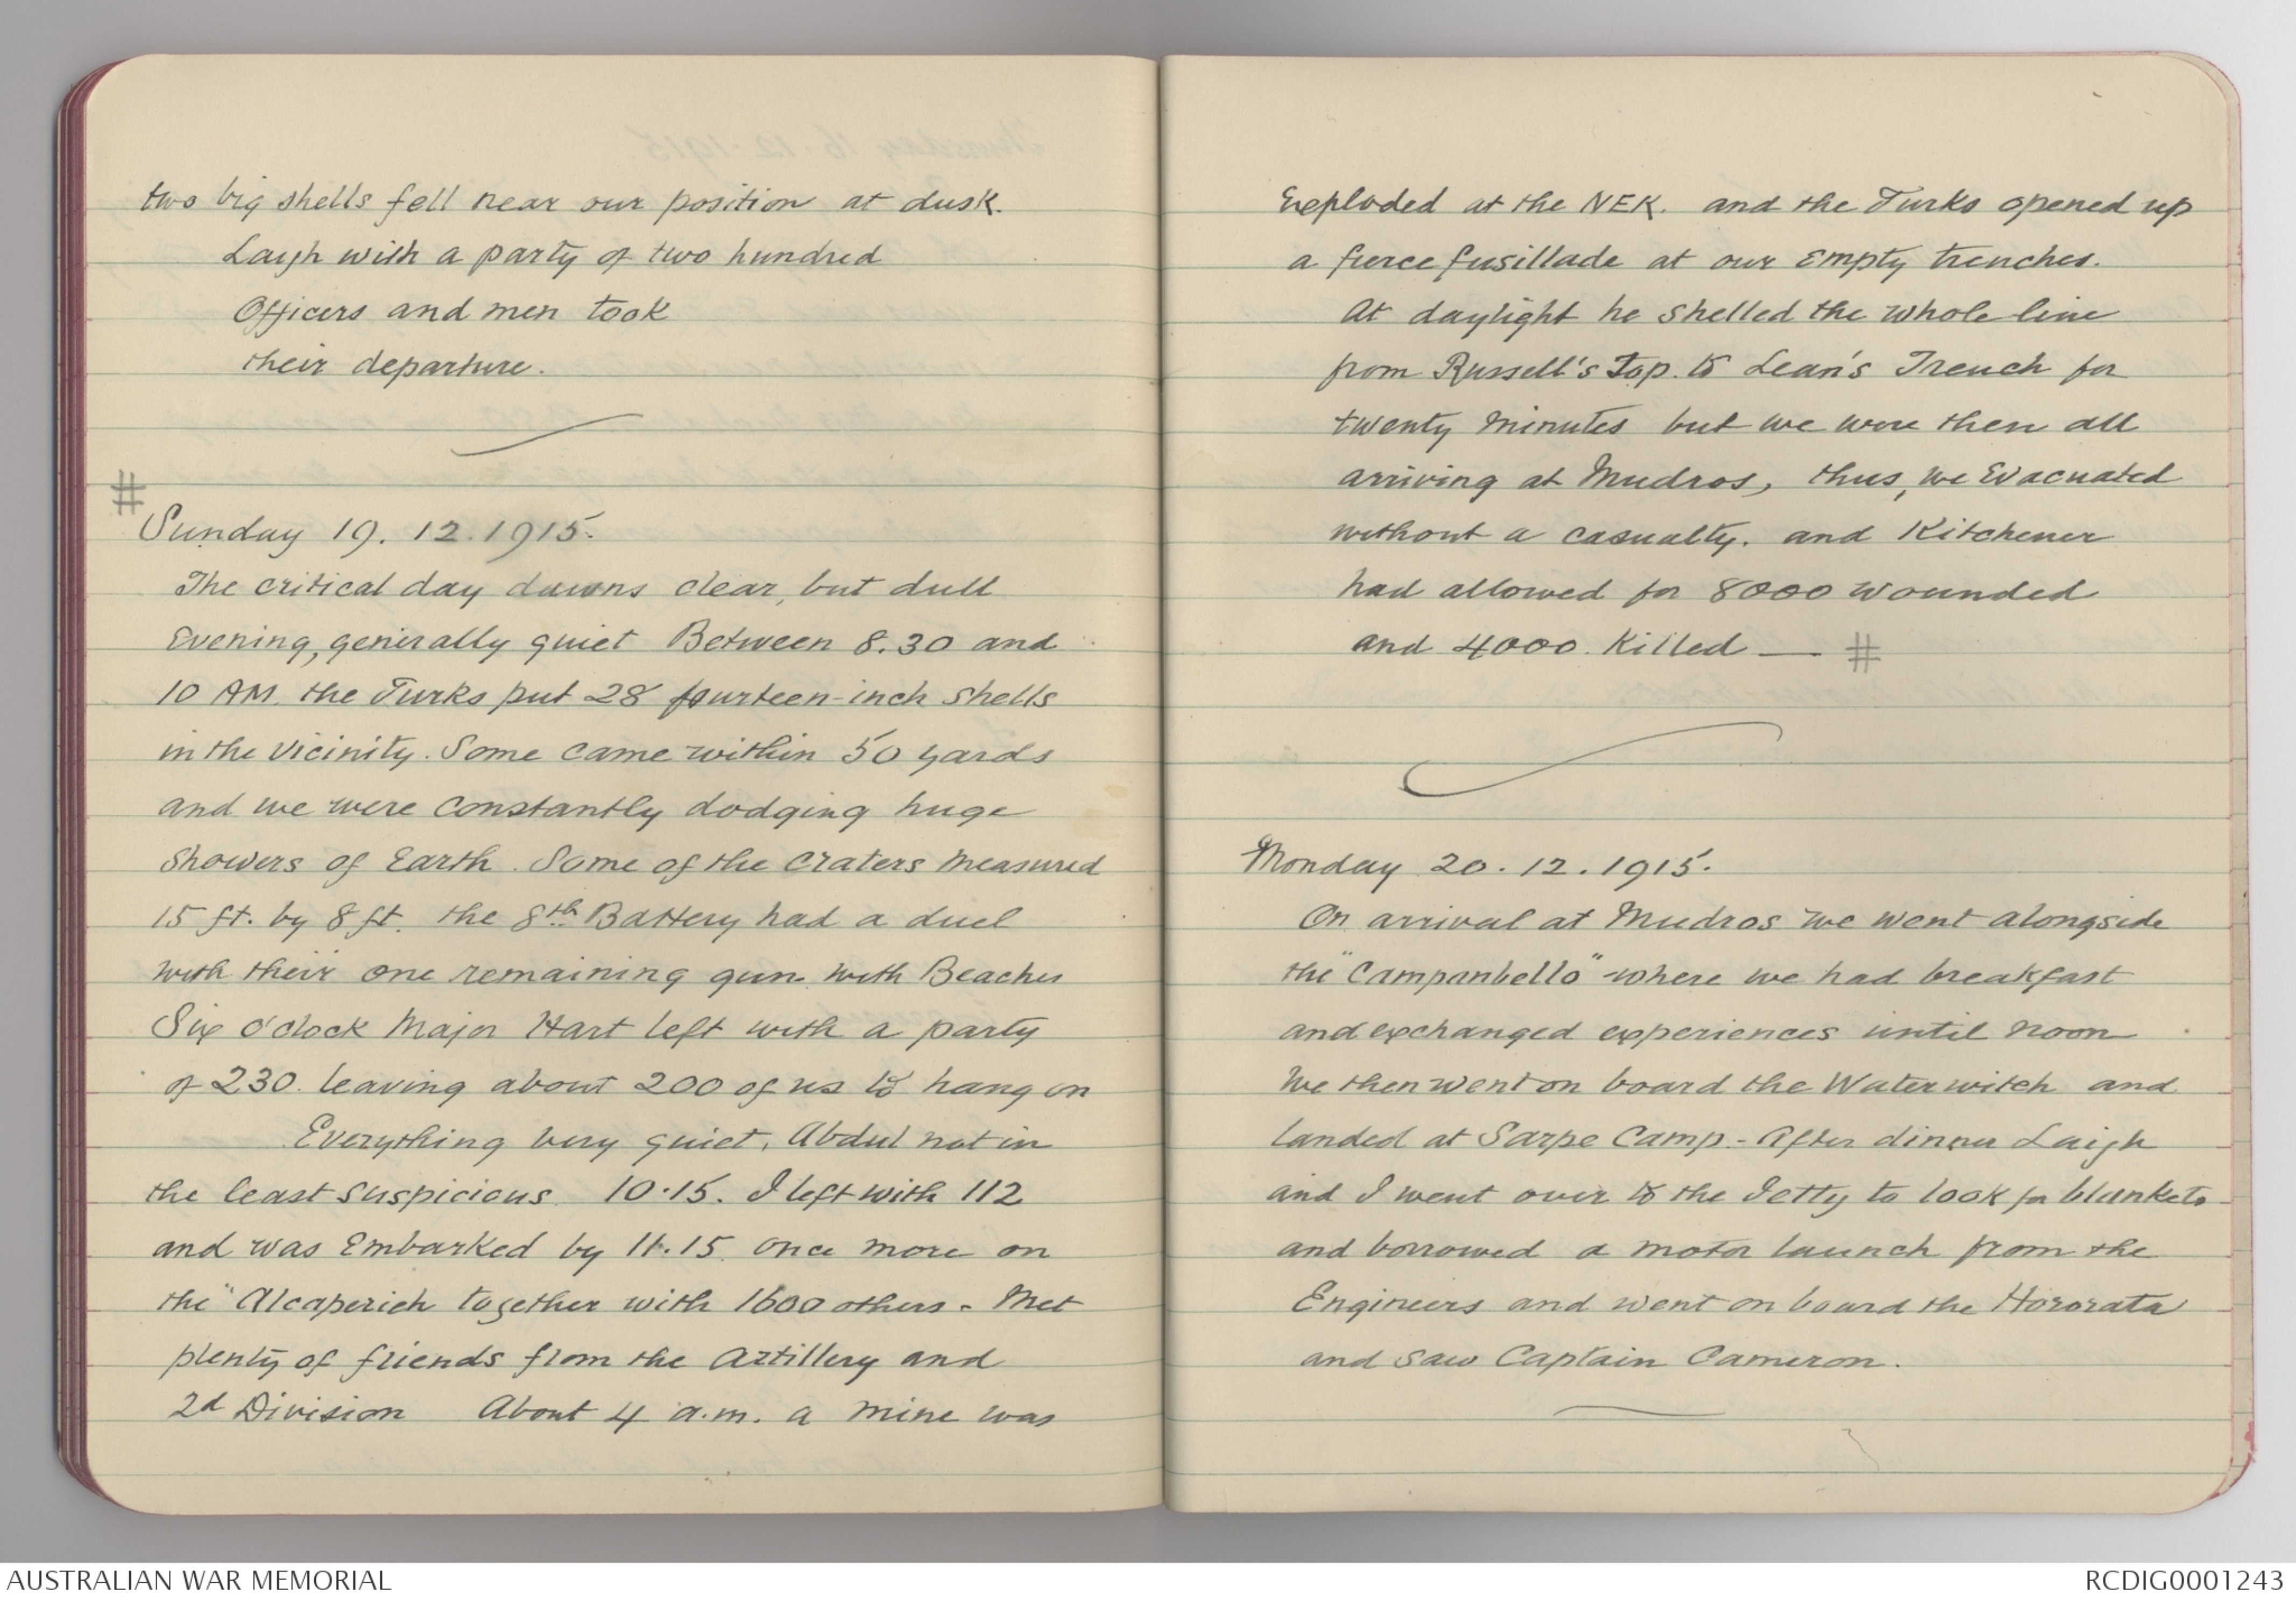 two big shells fell near our position at dusk.
Laigh with a party of two hundred
Officers and men took
their departure.
#
Sunday 19.12.1915.
The critical day dawns clear, but dull
Evening, generally quiet Between 8.30 and
10 AM. the Turks put 28 fourteen-inch shells
in the vicinity. Some came within 50 yards
and we were constantly dodging huge
showers of Earth. Some of the craters measured
15 ft. by 8 ft. the 8th Battery had a duel
with their one remaining gun with Beachy
Six o'clock Major Hart left with a party
of 230. leaving about 200 of us to hang on
Everything very quiet, Abdul not in
the least suspicious. 10.15. I left with 112
and was Embarked by 11.15. once more on
the "Alcaperich together with 1600 others - Met
plenty of friends from the Artillery and
2d Division About 4 a.m. a mine was
Exploded at the NEK. and the Turks opened up
a fierce fusillade at our Empty trenches.
At daylight he shelled the whole line
from Russell's Top. to Lean's Trench for
twenty minutes but we were then all
arriving at Mudros, thus, we Evacuated
without a casualty. and Kitchener
had allowed for 8000 wounded
and 4000. Killed — #
Monday 20.12.1915.
On arrival at Mudros we went alongside
the "Campanbello" where we had breakfast
and exchanged experiences until noon
We then went on board the Waterwitch and
landed at Sarpe Camp - After dinner Laigh
and I went over to the Jetty to look for blankets
and borrowed a motor launch from the
Engineers and went on board the Hororata
and saw Captain Cameron.
AUSTRALIAN WAR MEMORIAL
RCDIG0001243